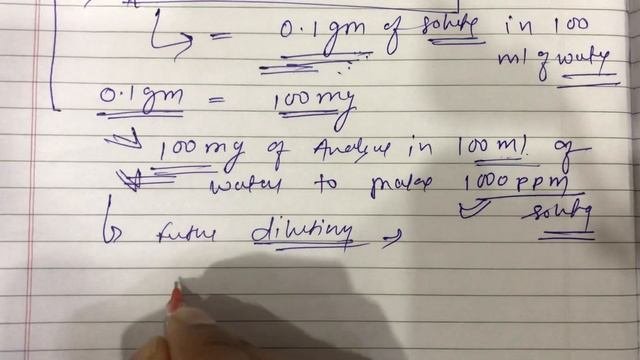 = 0.1 gm of solute in 100
ml of water
0.1 gm = 100 mg
100 mg of Analyse in 100 ml of
water to make 1000 ppm
solute
future diluting →